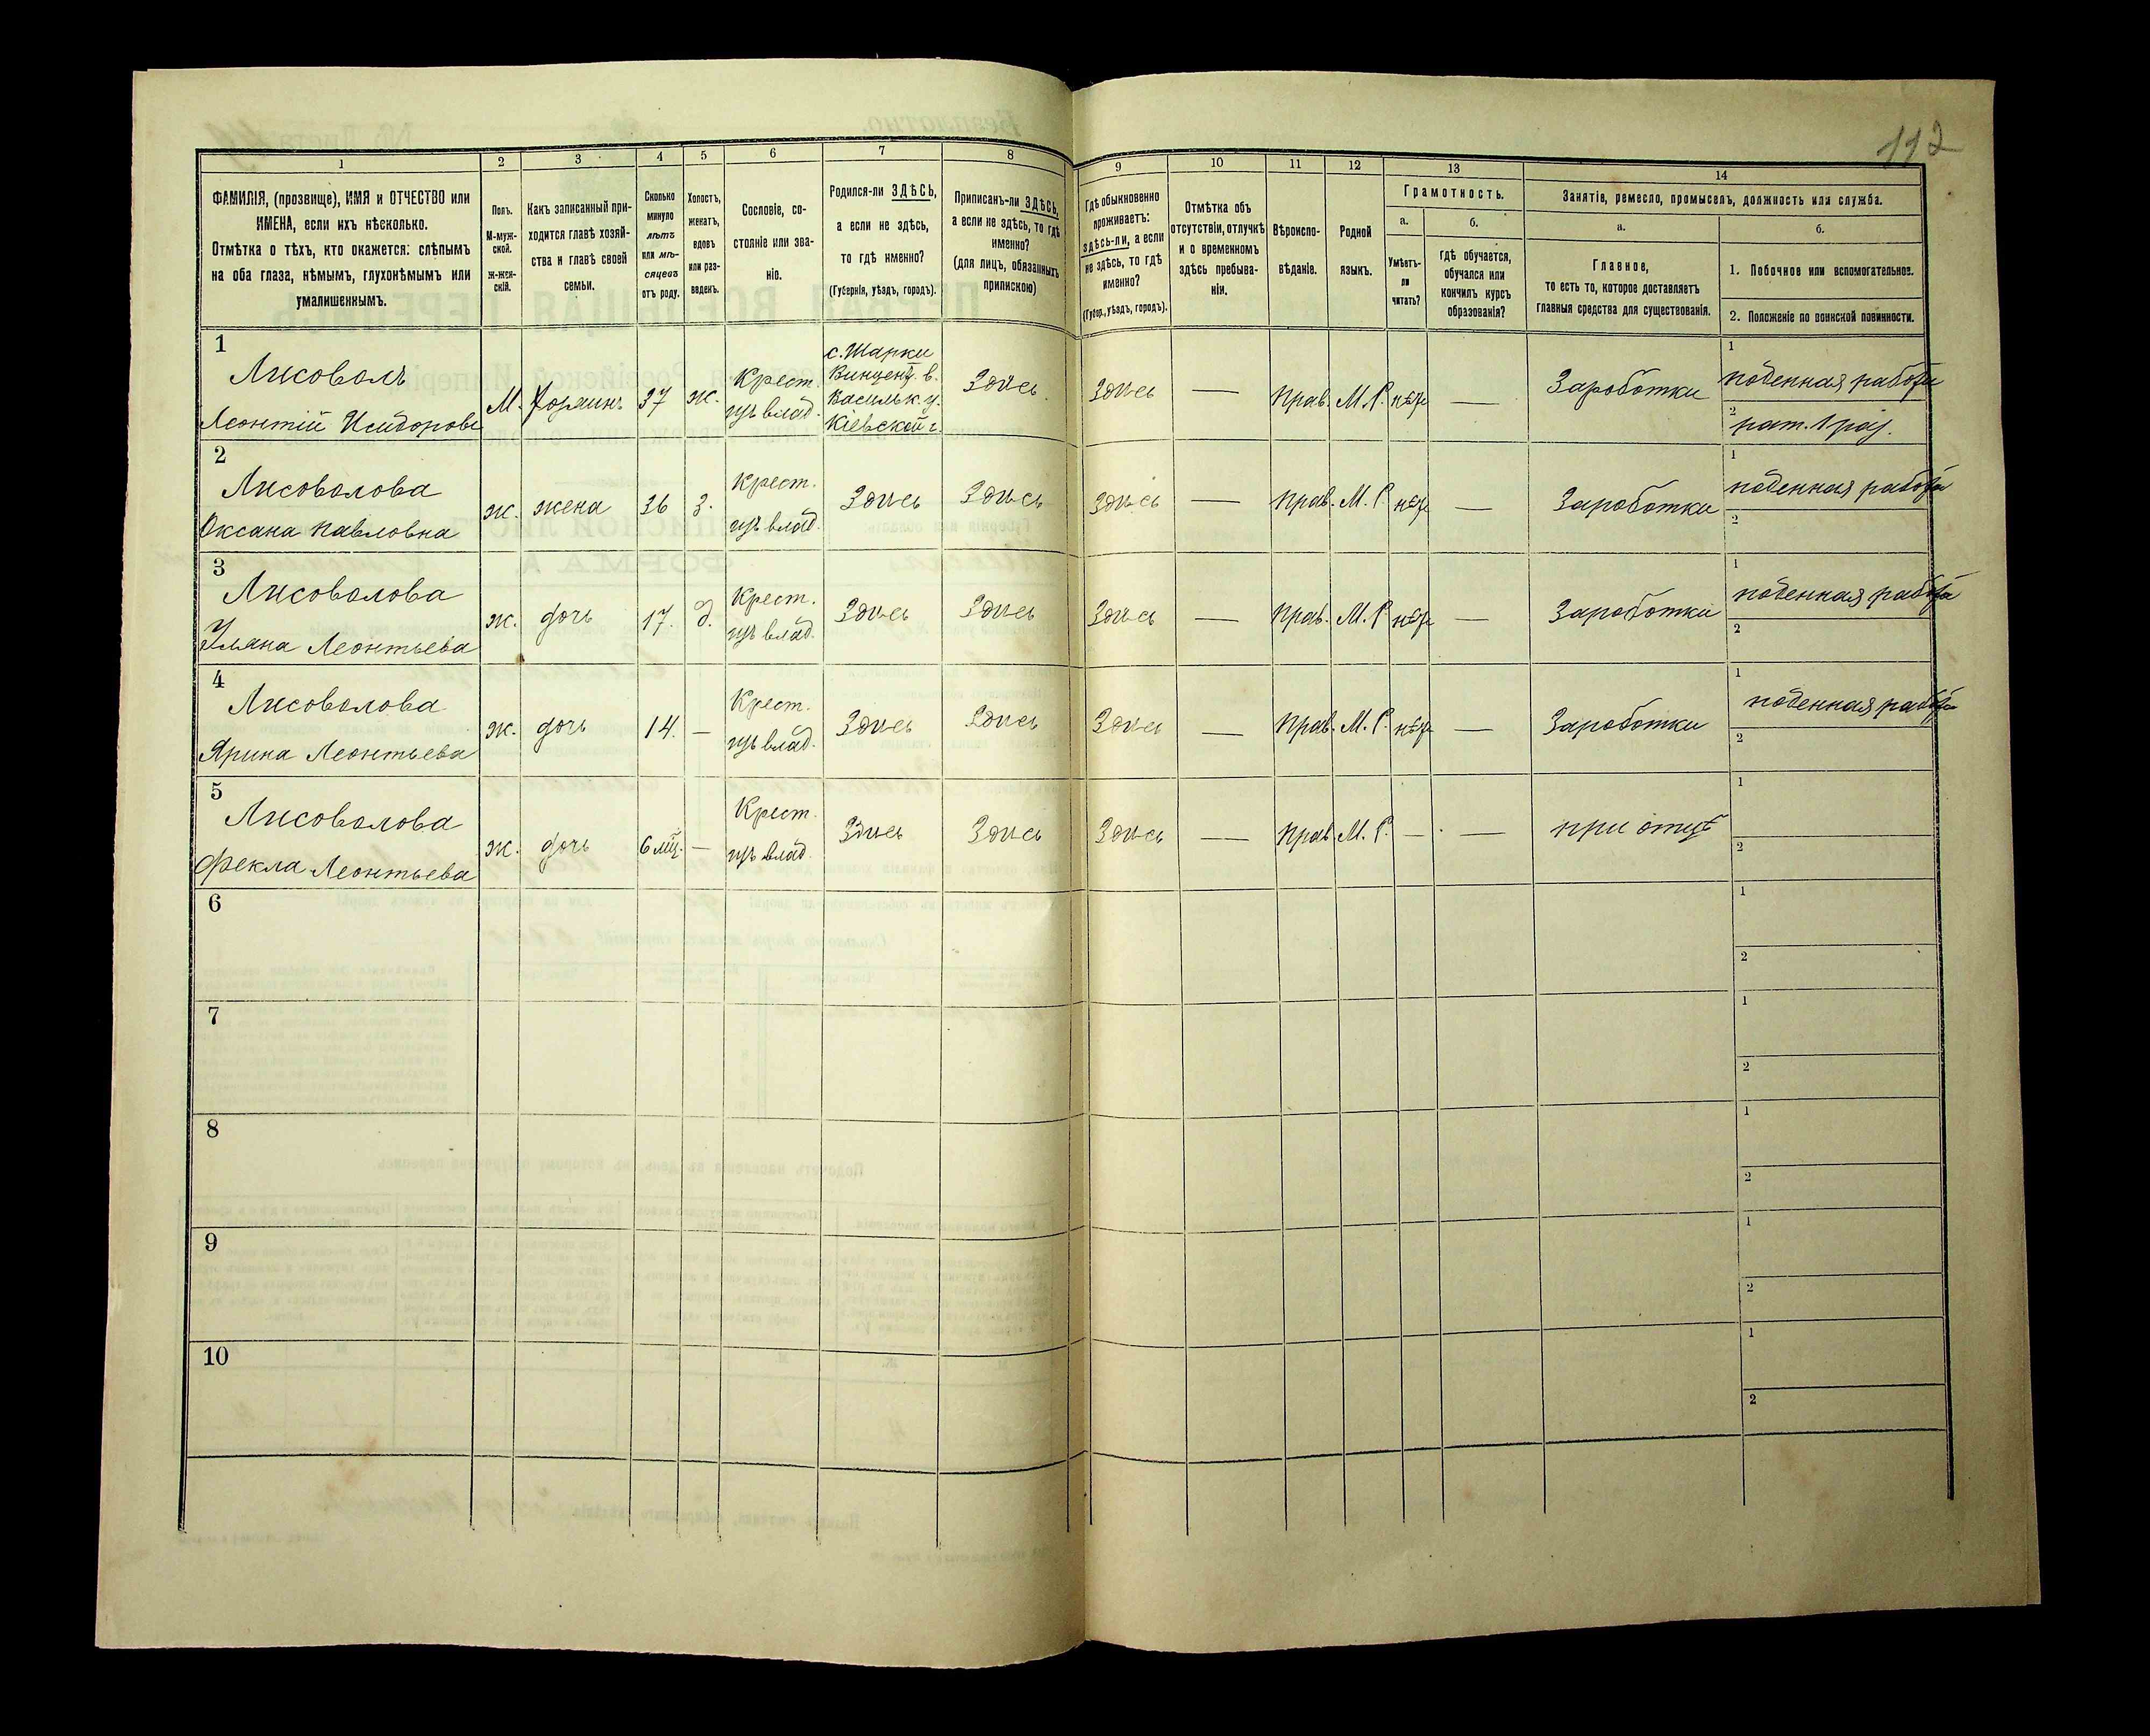 112
1
2
3
4
5
6
7
8
9
10
11
12
13
14
ФАМИЛІЯ, (прозвище), ИМЯ и ОТЧЕСТВО или
ИМЕНА, если ихъ нѣсколько.
Отмѣтка о тѣхъ, кто окажется: слѣпымъ
на оба глаза, нѣмымъ, глухонѣмымъ или
умалишеннымъ.
Полъ.
М-муж-
ской.
ж-жен-
скій.
Какъ записанный при-
ходится главѣ хозяй-
ства и главѣ своей
семьи.
Сколько
минуло
лѣтъ
или мѣ-
сяцевъ
отъ роду.
Холостъ,
женатъ,
вдовъ
или раз-
веденъ.
Сословіе, со-
стояніе или зва-
ніе.
Родился-ли ЗДѢСЬ,
а если не здѣсь,
то гдѣ именно?
(Губернія, уѣздъ, городъ).
Приписанъ-ли ЗДѢСЬ,
а если не здѣсь, то гдѣ
именно?
(для лицъ, обязанныхъ
припискою)
Гдѣ обыкновенно
проживаетъ:
здѣсь-ли, а если
не здѣсь, то гдѣ
именно?
(Губер., уѣздъ, городъ).
Отмѣтка объ
отсутствіи, отлучкѣ
и о временномъ
здѣсь пребыва-
ніи.
Вѣроиспо-
вѣданіе.
Родной
языкъ.
Грамотность.
а.
б.
Умѣетъ-
ли
читать?
гдѣ обучается,
обучался или
кончилъ курсъ
образованія?
Занятіе, ремесло, промыселъ, должность или служба.
а.
б.
Главное,
то есть то, которое доставляетъ
главныя средства для существованія.
1. Побочное или вспомогательное.
2. Положеніе по воинской повинности.
1
Лисоволъ
Леонтій Исидоровъ
М.
хозяинъ
37
ж.
Крест.
изъ влад.
с. Шарки
Винцент. в.
Васильк. у.
Кіевской г.
Здись
Здись
—
Прав.
М. Р.
нѣт
—
Зароботки
1
поденная работа
2
рат. 1 раз.
2
Лисоволова
Оксана Павловна
ж.
жена
36
з.
Крест.
изъ влад.
Здись
Здись
Здись
—
Прав.
М. Р.
нѣт
—
Зароботки
1
поденная работа
2
3
Лисоволова
Уляна Леонтьева
ж.
дочь
17.
д.
Крест.
изъ влад.
Здись
Здись
Здись
—
Прав.
М. Р.
нѣт
—
Зароботки
1
поденная работа
2
4
Лисоволова
Ярина Леонтьева
ж.
дочь
14.
—
Крест.
изъ влад.
Здись
Здись
Здись
—
Прав.
М. Р.
нѣт
—
Зароботки
1
поденная работа
2
5
Лисоволова
Фекла Леонтьева
ж.
дочь
6 мц.
—
Крест.
изъ влад.
Здись
Здись
Здись
—
Прав.
М. Р.
—
—
при отцѣ
1
2
6
1
2
7
1
2
8
1
2
9
1
2
10
1
2